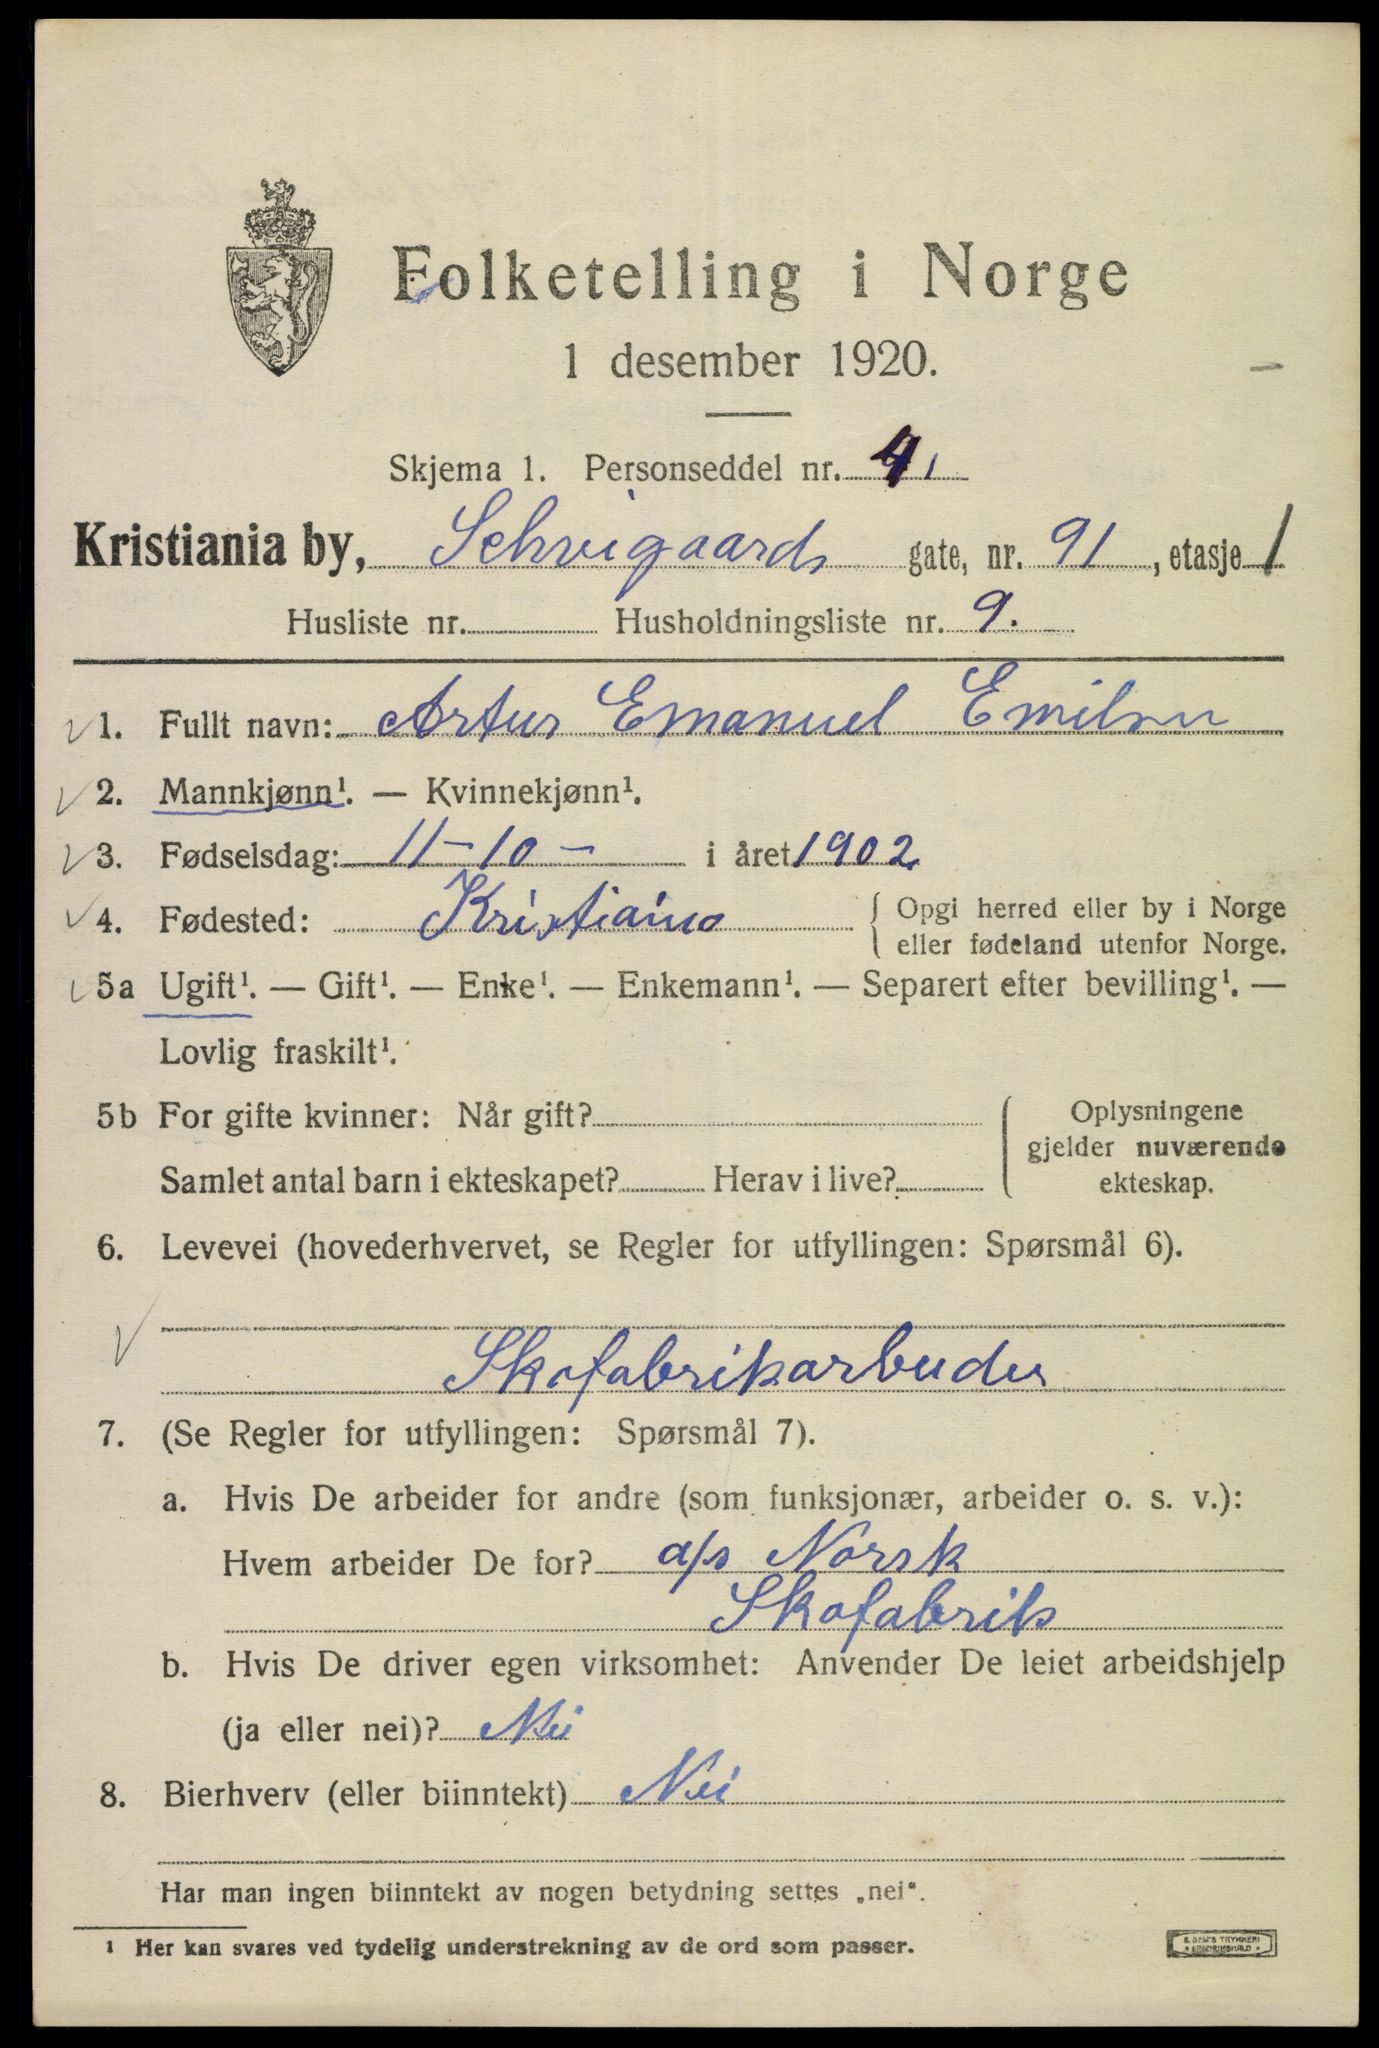 Folketelling i Norge
1 desember 1920.
Skjema 1. Personseddel nr. 4
Kristiania by, Schveigaards gate, nr. 91, etasje 1
Husliste nr. Husholdningsliste nr. 9.
1. Fullt navn: Artur Emanuel Emilsen
2. Mannkjønn¹. — Kvinnekjønn¹.
3. Fødselsdag: 11-10- i året 1902
4. Fødested: Kristiania { Opgi herred eller by i Norge
eller fødeland utenfor Norge.
5a Ugift¹. — Gift¹. — Enke¹. — Enkemann¹. — Separert efter bevilling¹. —
Lovlig fraskilt¹.
5b For gifte kvinner: Når gift? Oplysningene
gjelder nuværende
Samlet antal barn i ekteskapet? Herav i live? ekteskap.
6. Levevei (hovederhvervet, se Regler for utfyllingen: Spørsmål 6).
Skofabrikarbeider
7. (Se Regler for utfyllingen: Spørsmål 7).
a. Hvis De arbeider for andre (som funksjonær, arbeider o. s. v.):
Hvem arbeider De for? a/s Norsk
Skofabrik
b. Hvis De driver egen virksomhet: Anvender De leiet arbeidshjelp
(ja eller nei)? Nei
8. Bierhverv (eller biinntekt) Nei
Har man ingen biinntekt av nogen betydning settes „nei“.
¹ Her kan svares ved tydelig understrekning av de ord som passer.
E. SEM'S TRYKKERI
FREDRIKSHALD